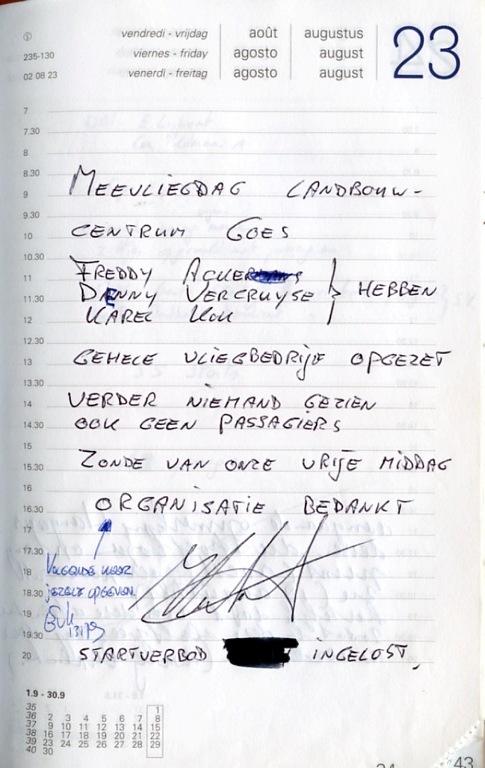 vendredi - vrijdag août augustus
235-130 viernes - friday agosto august
02 08 23 venerdi - freitag agosto august
23
7
7.30
8
8.30
9 MEEVLIEGDAG LANDBOUW-
9.30
10 CENTRUM GOES
10.30
11 FREDDY
11.30 DENNY VERCRUYSE } HEBBEN
12 KAREL KOK
12.30
13 GEHELE VLIEGBEDRIJF OPGEZET
13.30
14 VERDER NIEMAND GEZIEN
14.30 OOK GEEN PASSAGIERS
15
15.30 ZONDE VAN ONZE VRIJE MIDDAG
16
16.30 ORGANISATIE BEDANKT
17
17.30
18 VOLGENDE KEER
18.30 JEZELF OPGEVEN.
19
19.30 13/19
20 STARTVERBOD INGELOST.
1.9 - 30.9
35 1
36 2 3 4 5 6 7 8
37 9 10 11 12 13 14 15
38 16 17 18 19 20 21 22
39 23 24 25 26 27 28 29
40 30
43